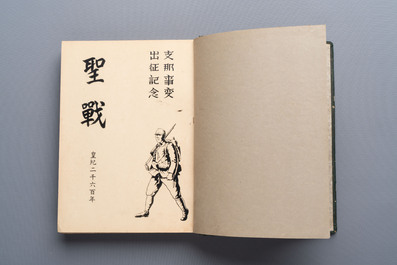 支那事変
出征記念
聖戰
皇紀二千六百年